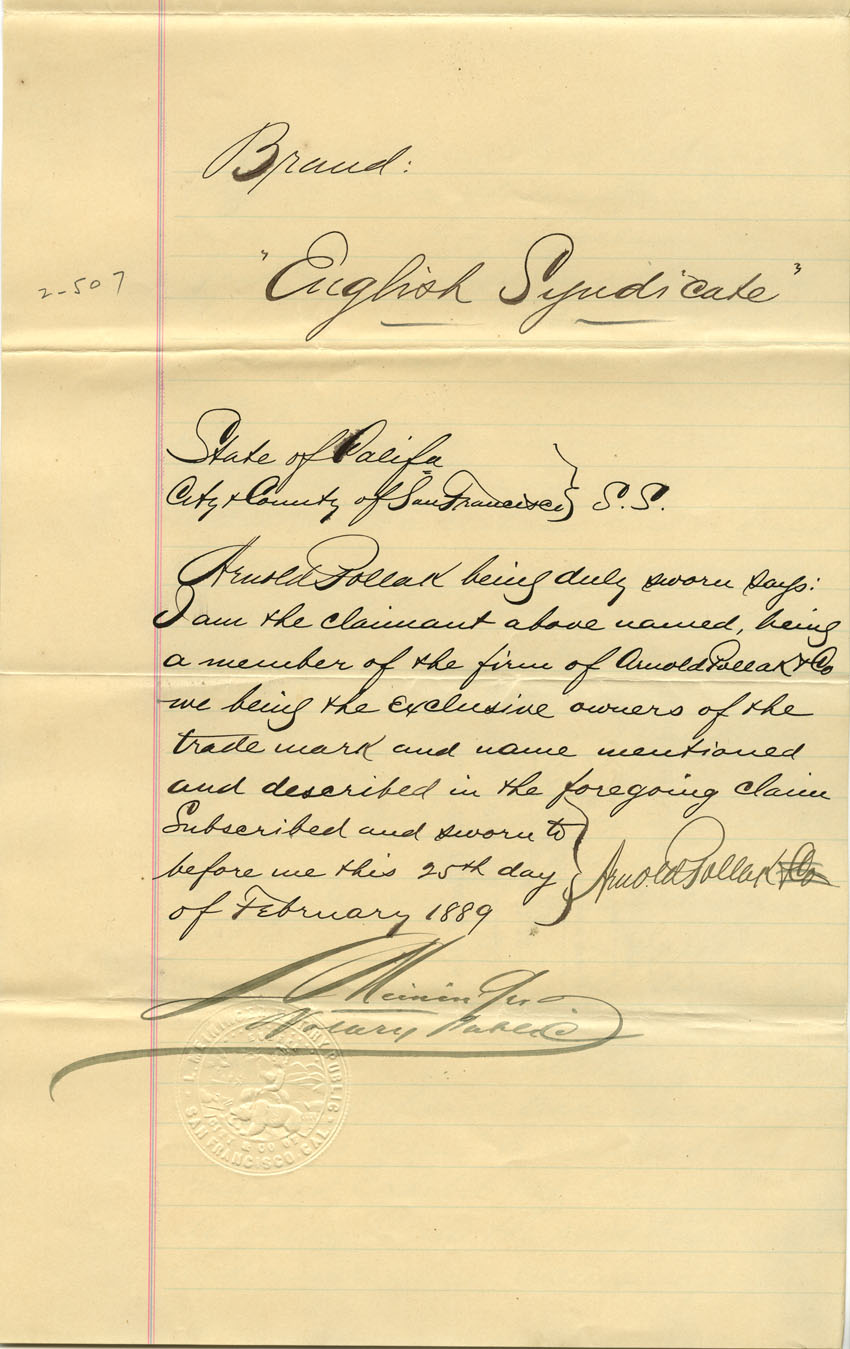 Brand:
"English Syndicate"
2-507
State of Califa
City & County of San Francisco } S.S.
Arnold Pollak being duly sworn says:
I am the claimant above named, being
a member of the firm of Arnold Pollak & Co
we being the exclusive owners of the
trade mark and name mentioned
and described in the foregoing claim
Subscribed and sworn to
before me this 25th day } Arnold Pollak & Co
of February 1889
Notary Public
NOTARY PUBLIC
CITY & CO OF
SAN FRANCISCO CAL.